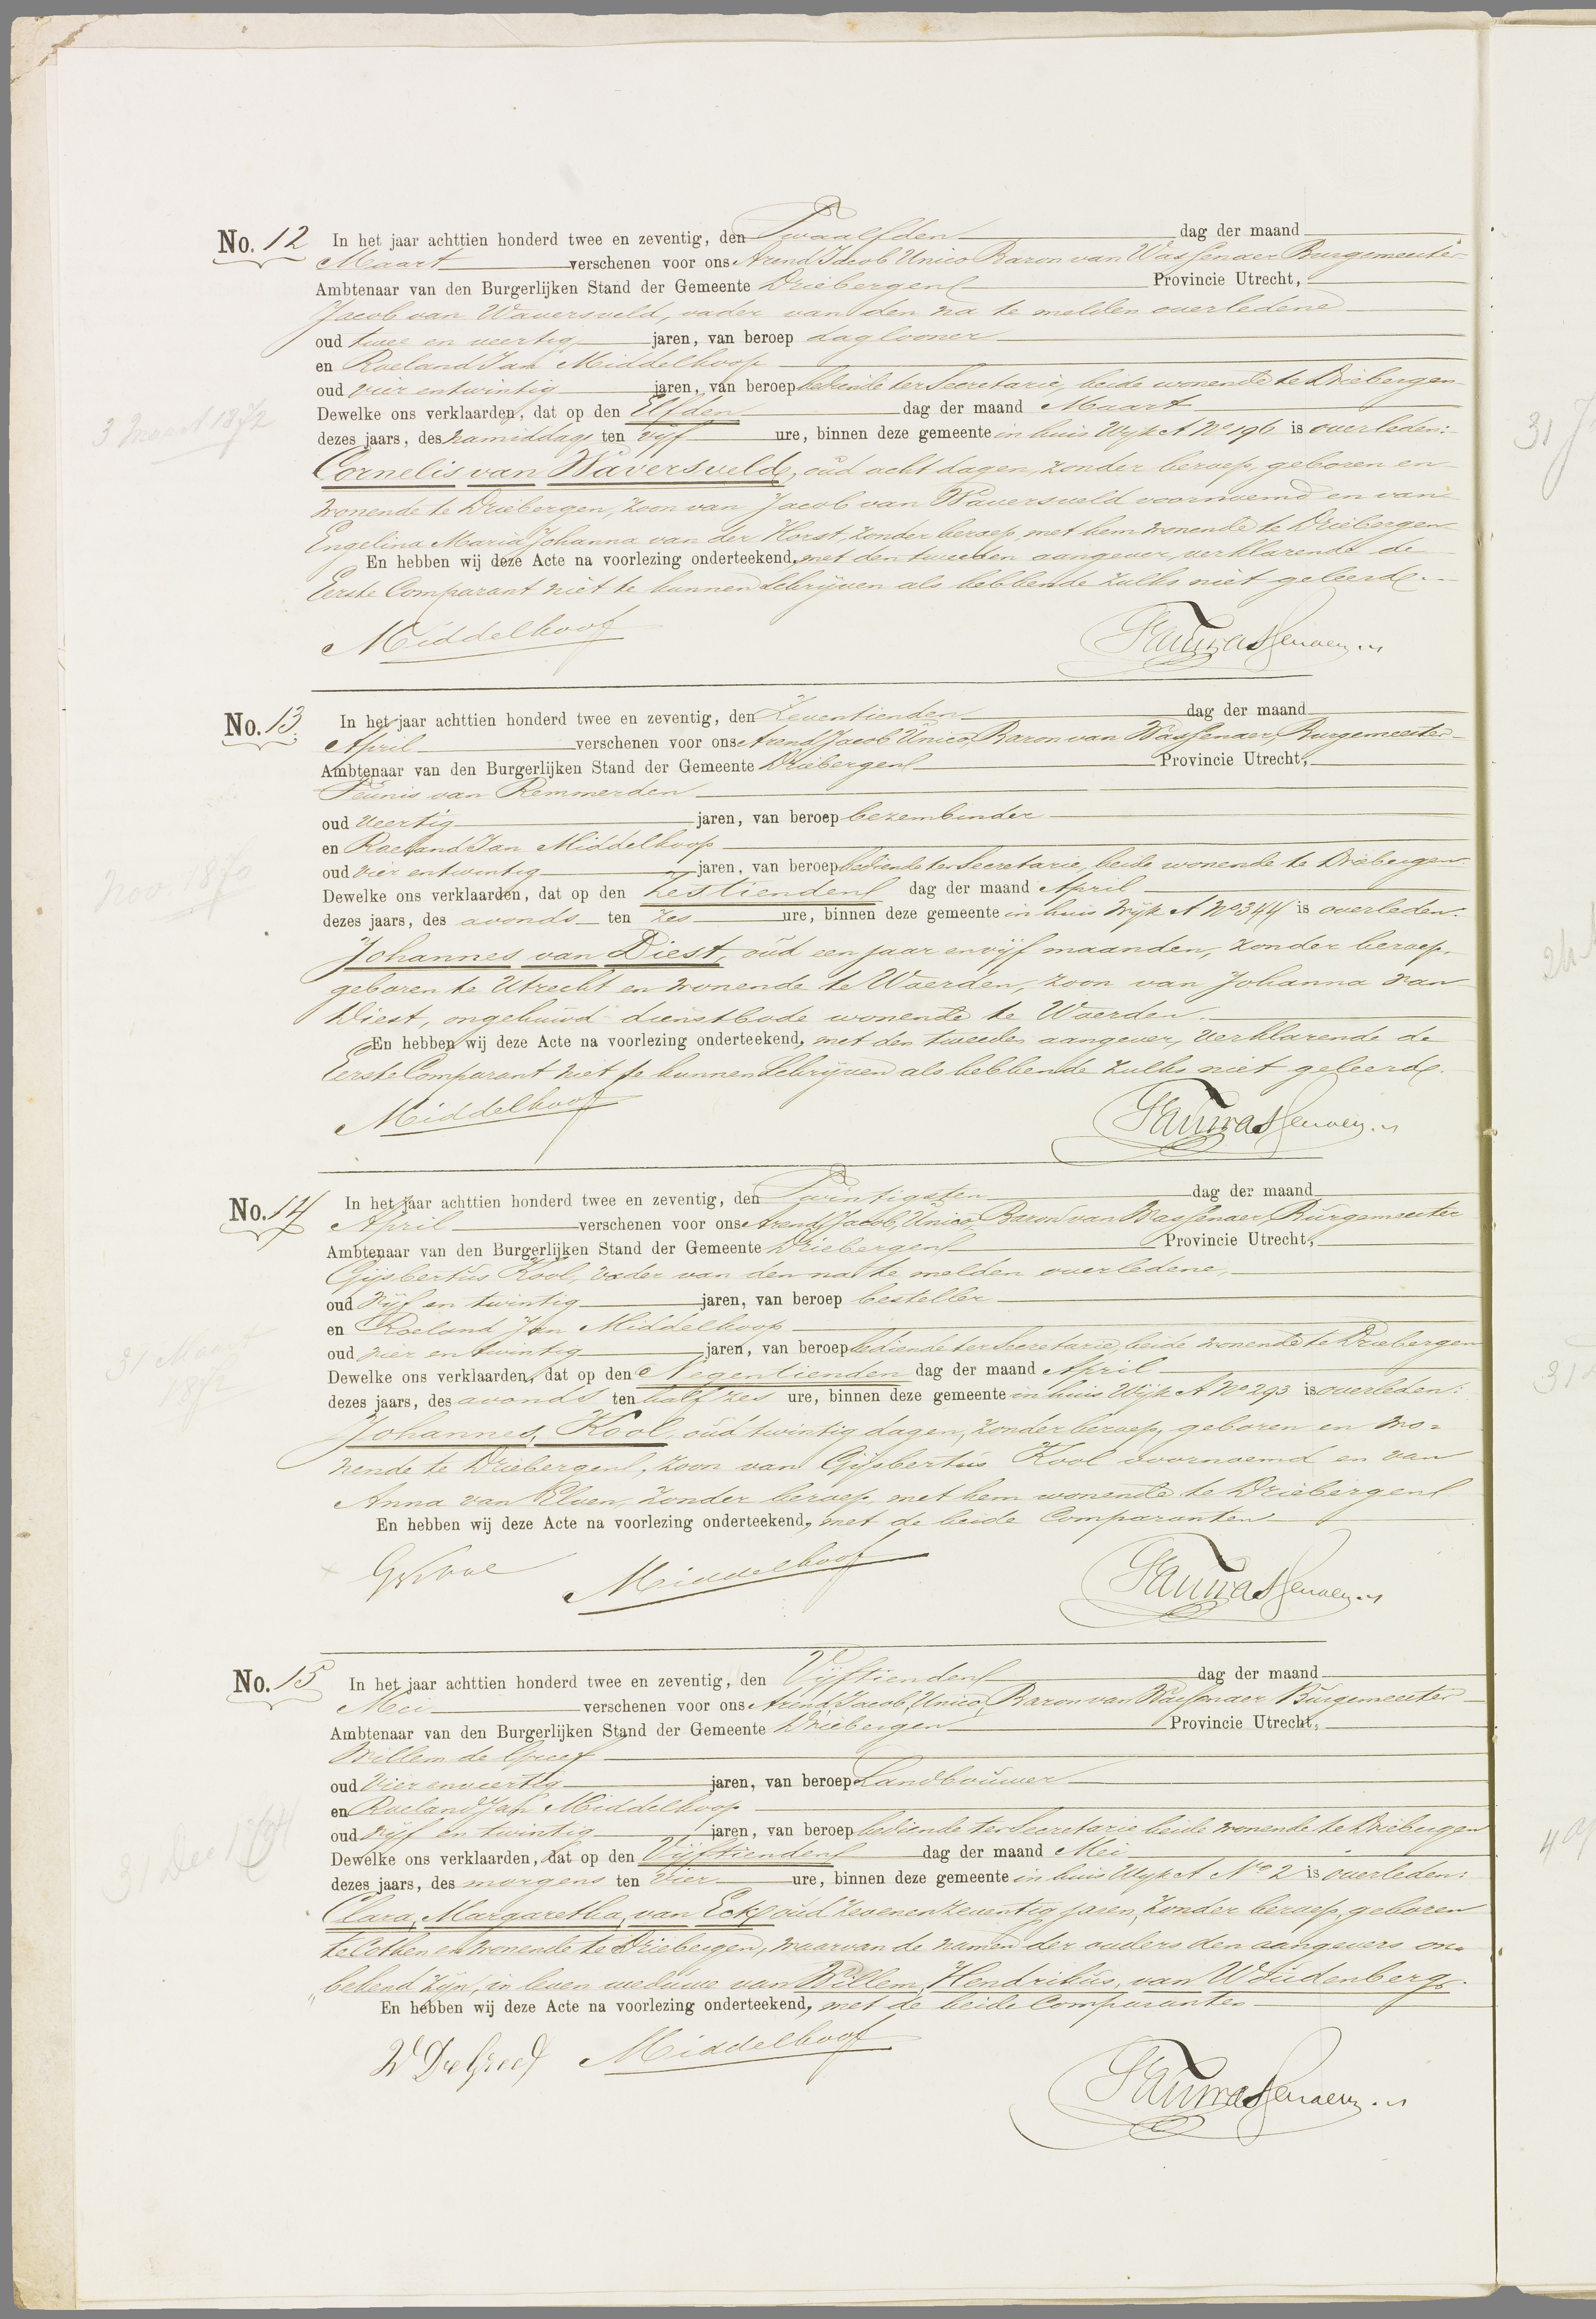 No. 12 In het jaar achttien honderd twee en zeventig, den Twaalfden dag der maand
Maart verschenen voor ons Arend Jacob Unico Baron van Wassenaer Burgemeester
Ambtenaar van den Burgerlijken Stand der Gemeente Driebergen Provincie Utrecht,
Jacob van Waversveld, vader van den na te melden overledene
oud twee en veertig jaren, van beroep daglooner
en Roeland Jan Middelkoop
oud vier entwintig jaren, van beroep bediende ter Secretarie, beide wonende te Driebergen
Dewelke ons verklaarden, dat op den Elfden dag der maand Maart
3 Maart 1872
dezes jaars, des namiddags ten vijf ure, binnen deze gemeente in huis Wijk A No 196 is overleden:
Cornelis van Waversveld, oud acht dagen, zonder beroep, geboren en
wonende te Driebergen, zoon van Jacob van Waversveld voornoemd en van
Engelina Maria Johanna van der Horst, zonder beroep, met hem wonende te Driebergen
En hebben wij deze Acte na voorlezing onderteekend, met den tweeden aangever, verklarende de
Eerste Comparant niet te kunnen Schrijven als hebbende zulks niet geleerd.
Middelkoop
No. 13. In het jaar achttien honderd twee en zeventig, den Zeventienden dag der maand
April verschenen voor ons Arend Jacob Unico, Baron van Wassenaer, Burgemeester
Ambtenaar van den Burgerlijken Stand der Gemeente Driebergen Provincie Utrecht,
Teunis van Remmerden
oud veertig jaren, van beroep bezembinder
en Roeland Jan Middelkoop
oud vier entwintig jaren, van beroep bediende ter Secretarie, beide wonende te Driebergen
Nov. 1870
Dewelke ons verklaarden, dat op den Zestienden dag der maand April
dezes jaars, des avonds ten zes ure, binnen deze gemeente in huis Wijk A No 344 is overleden:
Johannes van Diest, oud een jaar en vijf maanden, zonder beroep,
geboren te Utrecht en wonende te Woerden, zoon van Johanna van
Diest, ongehuwd dienstbode wonende te Woerden.
En hebben wij deze Acte na voorlezing onderteekend, met den tweeden aangever, verklarende de
Eerste Comparant niet te kunnen Schrijven als hebbende zulks niet geleerd.
Middelkoop
No. 14 In het jaar achttien honderd twee en zeventig, den Twintigsten dag der maand
April verschenen voor ons Arend, Jacob, Unico, Baron van Wassenaer, Burgemeester
Ambtenaar van den Burgerlijken Stand der Gemeente Driebergen Provincie Utrecht,
Gijsbertus Kool, vader van den na te melden overledene,
oud vijf en twintig jaren, van beroep besteller
en Roeland Jan Middelkoop
oud vier en twintig jaren, van beroep bediende ter Secretarie, beide wonende te Driebergen
31 Maart
1872
Dewelke ons verklaarden, dat op den Negentienden dag der maand April
dezes jaars, des avonds ten half zes ure, binnen deze gemeente in huis Wijk A No 293 is overleden:
Johannes, Kool, oud twintig dagen, zonder beroep, geboren en wo=
nende te Driebergen, zoon van Gijsbertus Kool voornoemd en van
Anna van Elven, zonder beroep, met hem wonende te Driebergen
En hebben wij deze Acte na voorlezing onderteekend, met de beide Comparanten
G Kool Middelkoop
No. 15 In het jaar achttien honderd twee en zeventig, den Vijftienden dag der maand
Mei verschenen voor ons Arend, Jacob, Unico, Baron van Wassenaer Burgemeester
Ambtenaar van den Burgerlijken Stand der Gemeente Driebergen Provincie Utrecht,
Willem de Greef
oud vier en veertig jaren, van beroep Landbouwer
en Roeland Jan Middelkoop
oud vijf en twintig jaren, van beroep bediende ter Secretarie beide wonende te Driebergen
Dewelke ons verklaarden, dat op den Vijftienden dag der maand Mei
31 Dec
dezes jaars, des morgens ten vier ure, binnen deze gemeente in huis Wijk A No 2 is overleden:
Clara, Margaretha, van Eck, oud zevenenzeventig jaren, zonder beroep, geboren
te Cothen en wonende te Driebergen, waarvan de namen der ouders den aangevers on=
bekend zijn, in leven weduwe van Willem, Hendrikus, van Woudenberg.
En hebben wij deze Acte na voorlezing onderteekend, met de beide Comparanten
W De Greef Middelkoop